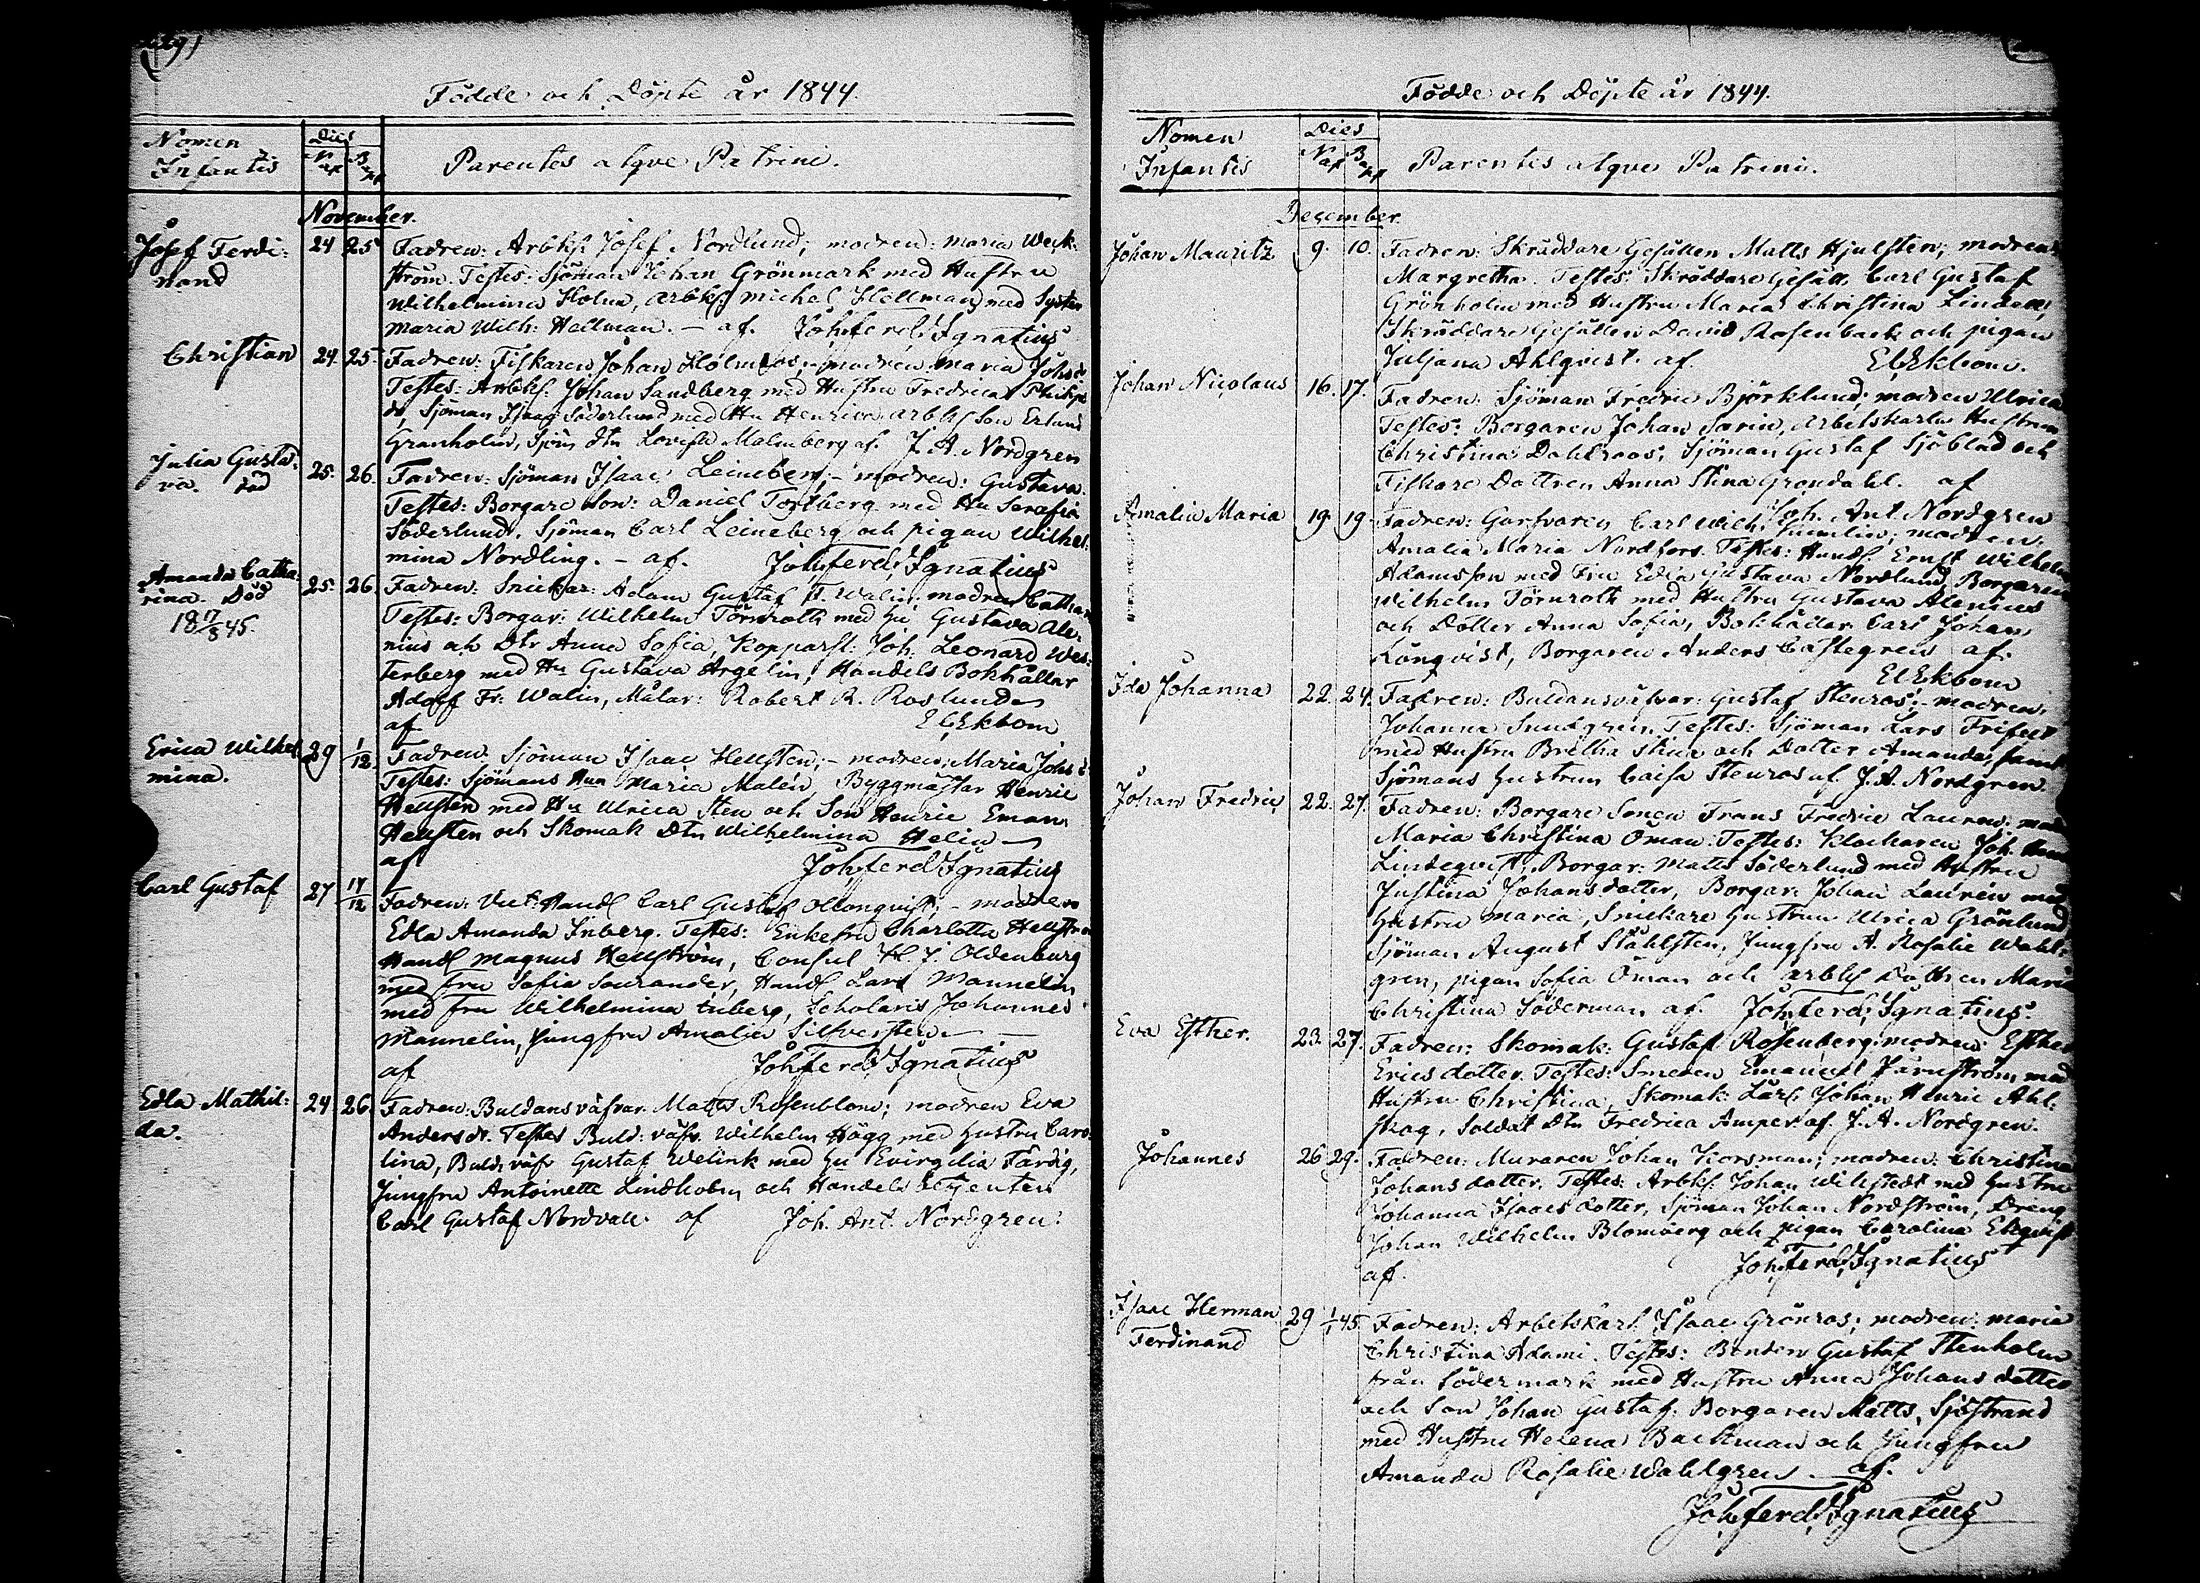 Födde och Döpte år 1844.
Nomen Infantis
Dies
Nat Bapt
Parentes atqve Patrini.
November.
Josef Ferdi-
nand
24 25
Fadren: Arbks: Josef Nordlund; modren: Maria Weck-
ström. Testes: Sjöman Johan Grönmark med Hustru
Wilhelmina Holm, Arbks: Michel Hellman med Syster
Maria Wilh: Hellman. — af. Joh: ferd: Ignatius
Christian
24. 25.
Fadren: Fiskaren Johan Holmros; modren Maria Johsd:
Testes: Arbks. Johan Sandberg med Hustru Fredrica
Sjöman Isaac Söderlund med Hu Henrica Arbks Son Erland
Granholm, Sjöm dtr Lovisa Malmberg af. J. A. Nordgren
Julia Gusta-
va. död
25. 26.
Fadren: Sjöman Isaac Leineberg; — modren: Gustava.
Testes: Borgare Son: Daniel Forsberg med Hu Serafia
Söderlund. Sjöman Carl Leineberg och pigan Wilhel-
mina Nordling. — af. Joh: ferd: Ignatius
Amanda Catha-
rina. Död
18 17/8 45.
25. 26
Fadren: Snickar: Adam Gustaf F. Walin; modren Cathar:
Testes: Borgar: Wilhelm Törnroth med Hu Gustava Ale-
nius och Dtr Anna Sofia, Kopparsl: Joh. Leonard Wes-
terberg med Hu Gustava Argelin, Handels Bokhållar
Adolf Fr: Walin, Målar: Robert R. Roslund
af E C Ekbom
Erica Wilhel-
mina.
29 1/12
Fadren: Sjöman Isaac Hellsten; — modren: Maria Johsd:
Testes: Sjömans Hun Maria Malén, Byggmästar Henric
Hellsten med Hu Ulrica Sten och Son Henric Eman:
Hellsten och Skomak Dtr Wilhelmina Helin —
af Joh: ferd Ignatius
Carl Gustaf
27 14/12
Fadren: Vict: Handl Carl Gustaf Ollonqvist; — modren
Edla Amanda Inberg. Testes: Enkefru Charlotta Hellström
Handl Magnus Hellström, Consul H. J. Oldenburg
med Fru Sofia Sourander, Handl Lars Mannelin
med fru Wilhelmina Inberg, Scholaris Johannes
Mannelin, Jungfru Amalia Silfversten —
af Joh: ferd: Ignatius
Edla Mathil-
da.
24 26
Fadren: Buldansväfvar Matts Rosenblom; modren Eva
Andersdr. Testes Buld: väfv. Wilhelm Högg med Hustru Caro-
lina, Buld: väfv Gustaf Welink med Hu Evirgilia Färdig,
Jungfru Antoinette Lindholm och Handels Betjenten
Carl Gustaf Nordvall. af Joh. Ant. Nordgren.
Födde och Döpte år 1844.
Nomen Infantis
Dies
Nat Bapt
Parentes atqve Patrini.
December.
Johan Mauritz
9. 10.
Fadren: Skräddare Gesällen Matts Hjulsten; modren
Margretha. Testes: Skräddare Gesäll Carl Gustaf
Grönholm med Hustru Maria Christina Lindell,
Skräddare Gesällen David Rosenback och pigan
Juljana Ahlqvist. af. E C Ekbom.
Johan Nicolaus
16. 17.
Fadren: Sjöman Fredric Björklund; modren Ulrica
Testes: Borgaren Johan Sarin, Arbetskarls Hustrun
Christina Dahlroos, Sjöman Gustaf Sjöblad och
Fiskare Dottren Anna Stina Gröndahl. af
Joh. Ant. Nordgren
Amalia Maria
19. 19.
Fadren: Garfvaren Carl Wilh: Sumelin; modren:
Amalia Maria Nordfors. Testes: Handl. Ernst Wilhelm
Adamsson med Fru Edla Gustava Nordlund, Borgaren
Wilhelm Törnroth med Hustru Gustava Alenius
och Dotter Anna Sofia, Bokhållar Carl Johan
Lönqvist, Borgaren Anders Castegren af.
E C Ekbom
Ida Johanna
22. 24.
Fadren: Buldansväfvar: Gustaf Stenros; — modren,
Johanna Sundgren. Testes: Sjöman Lars Frifelt
med Hustru Bretha Stina och Dotter Amanda, samt
Sjömans Hustrun Caisa Stenros af. J. A. Nordgren.
Johan Fredric
22. 27.
Fadren: Borgare Sonen Frans Fredric Lauren; mod:
Maria Christina Öman. Testes: Klockaren Joh.
Lindeqvist, Borgar: Matts Söderlund med Hustru
Justina Johansdotter, Borgar: Johan Laurén med
Hustru Maria, Snickare Hustrun Ulrica Grönlund
Sjöman August Ståhlsten, Jungfru A. Rosalie Wahl-
gren, pigan Sofia Öman och Arbks Dottren Maria
Christina Söderman af. Joh: ferd: Ignatius.
Eva Esther.
23. 27.
Fadren: Skomak: Gustaf Rosenberg; modren: Esther
Ericsdotter. Testes: Smeden Emanuel Järnström med
Hustru Christina, Skomak: Lärl: Johan Henric Ahl-
skog, Soldat Dtr Fredrica Amper af. J. A. Nordgren.
Johannes
26 29.
Fadren: Muraren Johan Korsman; modren: Christina
Johansdotter. Testes: Arbks. Johan Wikstedt med Hustru
Johanna Isaacsdotter, Sjöman Johan Nordström, Dreng
Johan Wilhelm Blomberg och pigan Carolina Ekqvist
af. Joh: Ferd: Ignatius
Isaac Herman
Ferdinand
29 1/1 45.
Fadren: Arbetskarl Isaac Grönros; modren: Maria
Christina Adami. Testes: Bonden Gustaf Stenholm
från Södermark med Hustru Anna Johansdotter
och Son Johan Gustaf. Borgaren Matts Sjöstrand
med Hustru Helena Backman och Jungfru
Amanda Rosalie Wahlgren. — af.
Joh: ferd: Ignatius